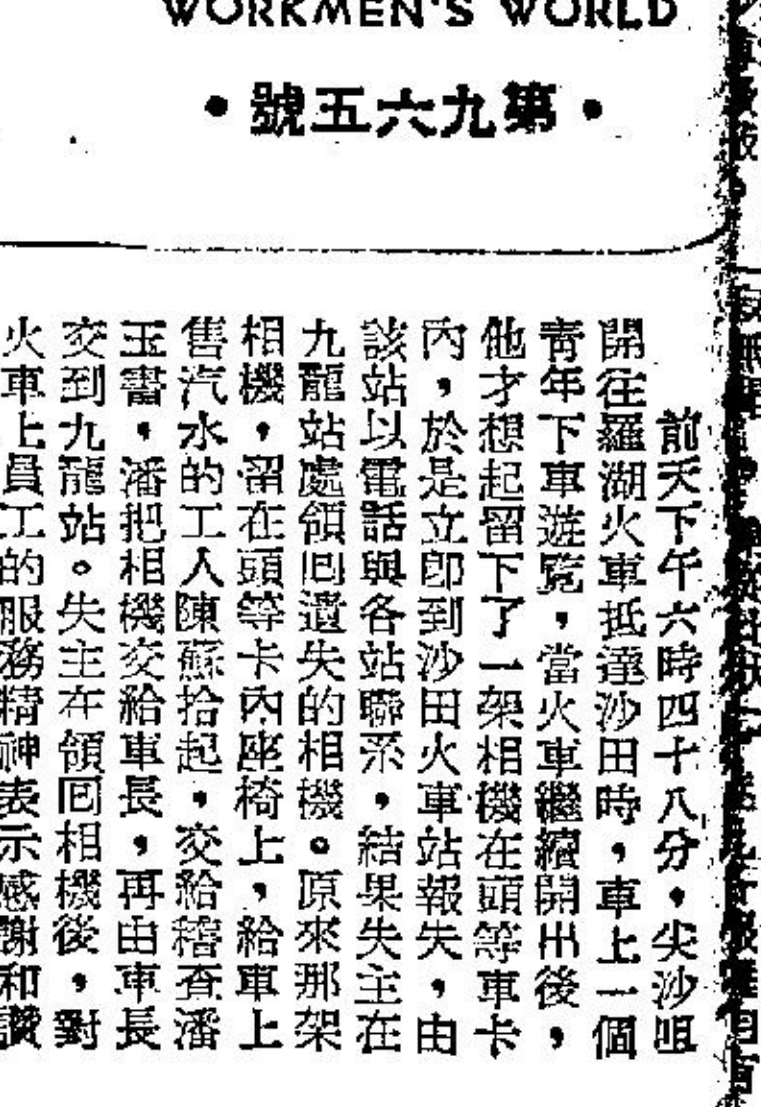 WORKMEN'S WORLD
•號五六九第•
前天下午六時四十八分，尖沙咀
開往羅湖火車抵達沙田時，車上一個
青年下車遊覽，當火車繼續開出後，
他才想起留下了一架相機在頭等車卡
內，於是立卽到沙田火車站報失，由
該站以電話與各站聯系，結果失主在
九龍站處領囘遺失的相機。原來那架
相機，留在頭等卡內座椅上，給車上
售汽水的工人陳蘇拾起，交給稽查潘
玉書，潘把相機交給車長，再由車長
交到九龍站。失主在領回相機後，對
火車上員工的服務精神表示感謝和讚